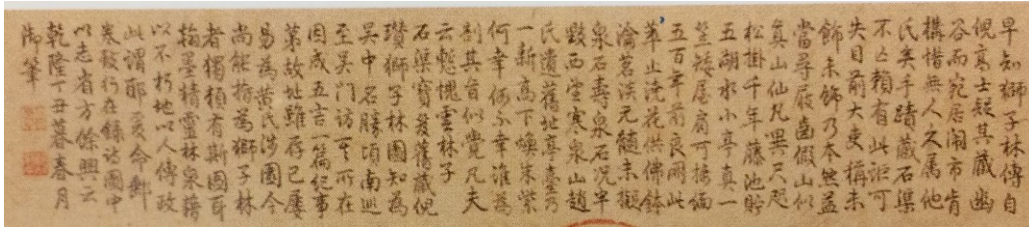 早知獅子林傳自
倪高士疑其藏幽
谷而宛居鬧市肯
構惜無人久属他
氏矣手蹟藏石渠
不亡賴有此訛可
失目前大吏稱未
飾未飾乃本然益
當尋屐齒假山似
真山仙凡異尺咫
松掛千年藤池貯
五湖水小亭真一
笠矮屋肩可掎緬
五百年前良朋此
萃止澆花供佛鉢
瀹茗談元髓未擬
泉石壽泉石况半
毀西望寒泉山趙
氏遺舊址亭臺乃
一新高下煥朱紫
何幸何不幸誰為
剖其旨似覺凡夫
云慙愧雲林子
石渠寳笈舊藏倪
瓚獅子林圖知為
吳中名勝頃南巡
至吳門訪其所在
因成五言一篇紀事
第故址雖存已屢
易為黃氏涉園今
尚能指為獅子林
者獨賴有斯圖耳
翰墨精靈林泉藉
以不朽地以人傳政
此謂耶爰命郵
致行在錄詩圖中
以志有方餘興云
乾隆丁丑暮春月
御筆